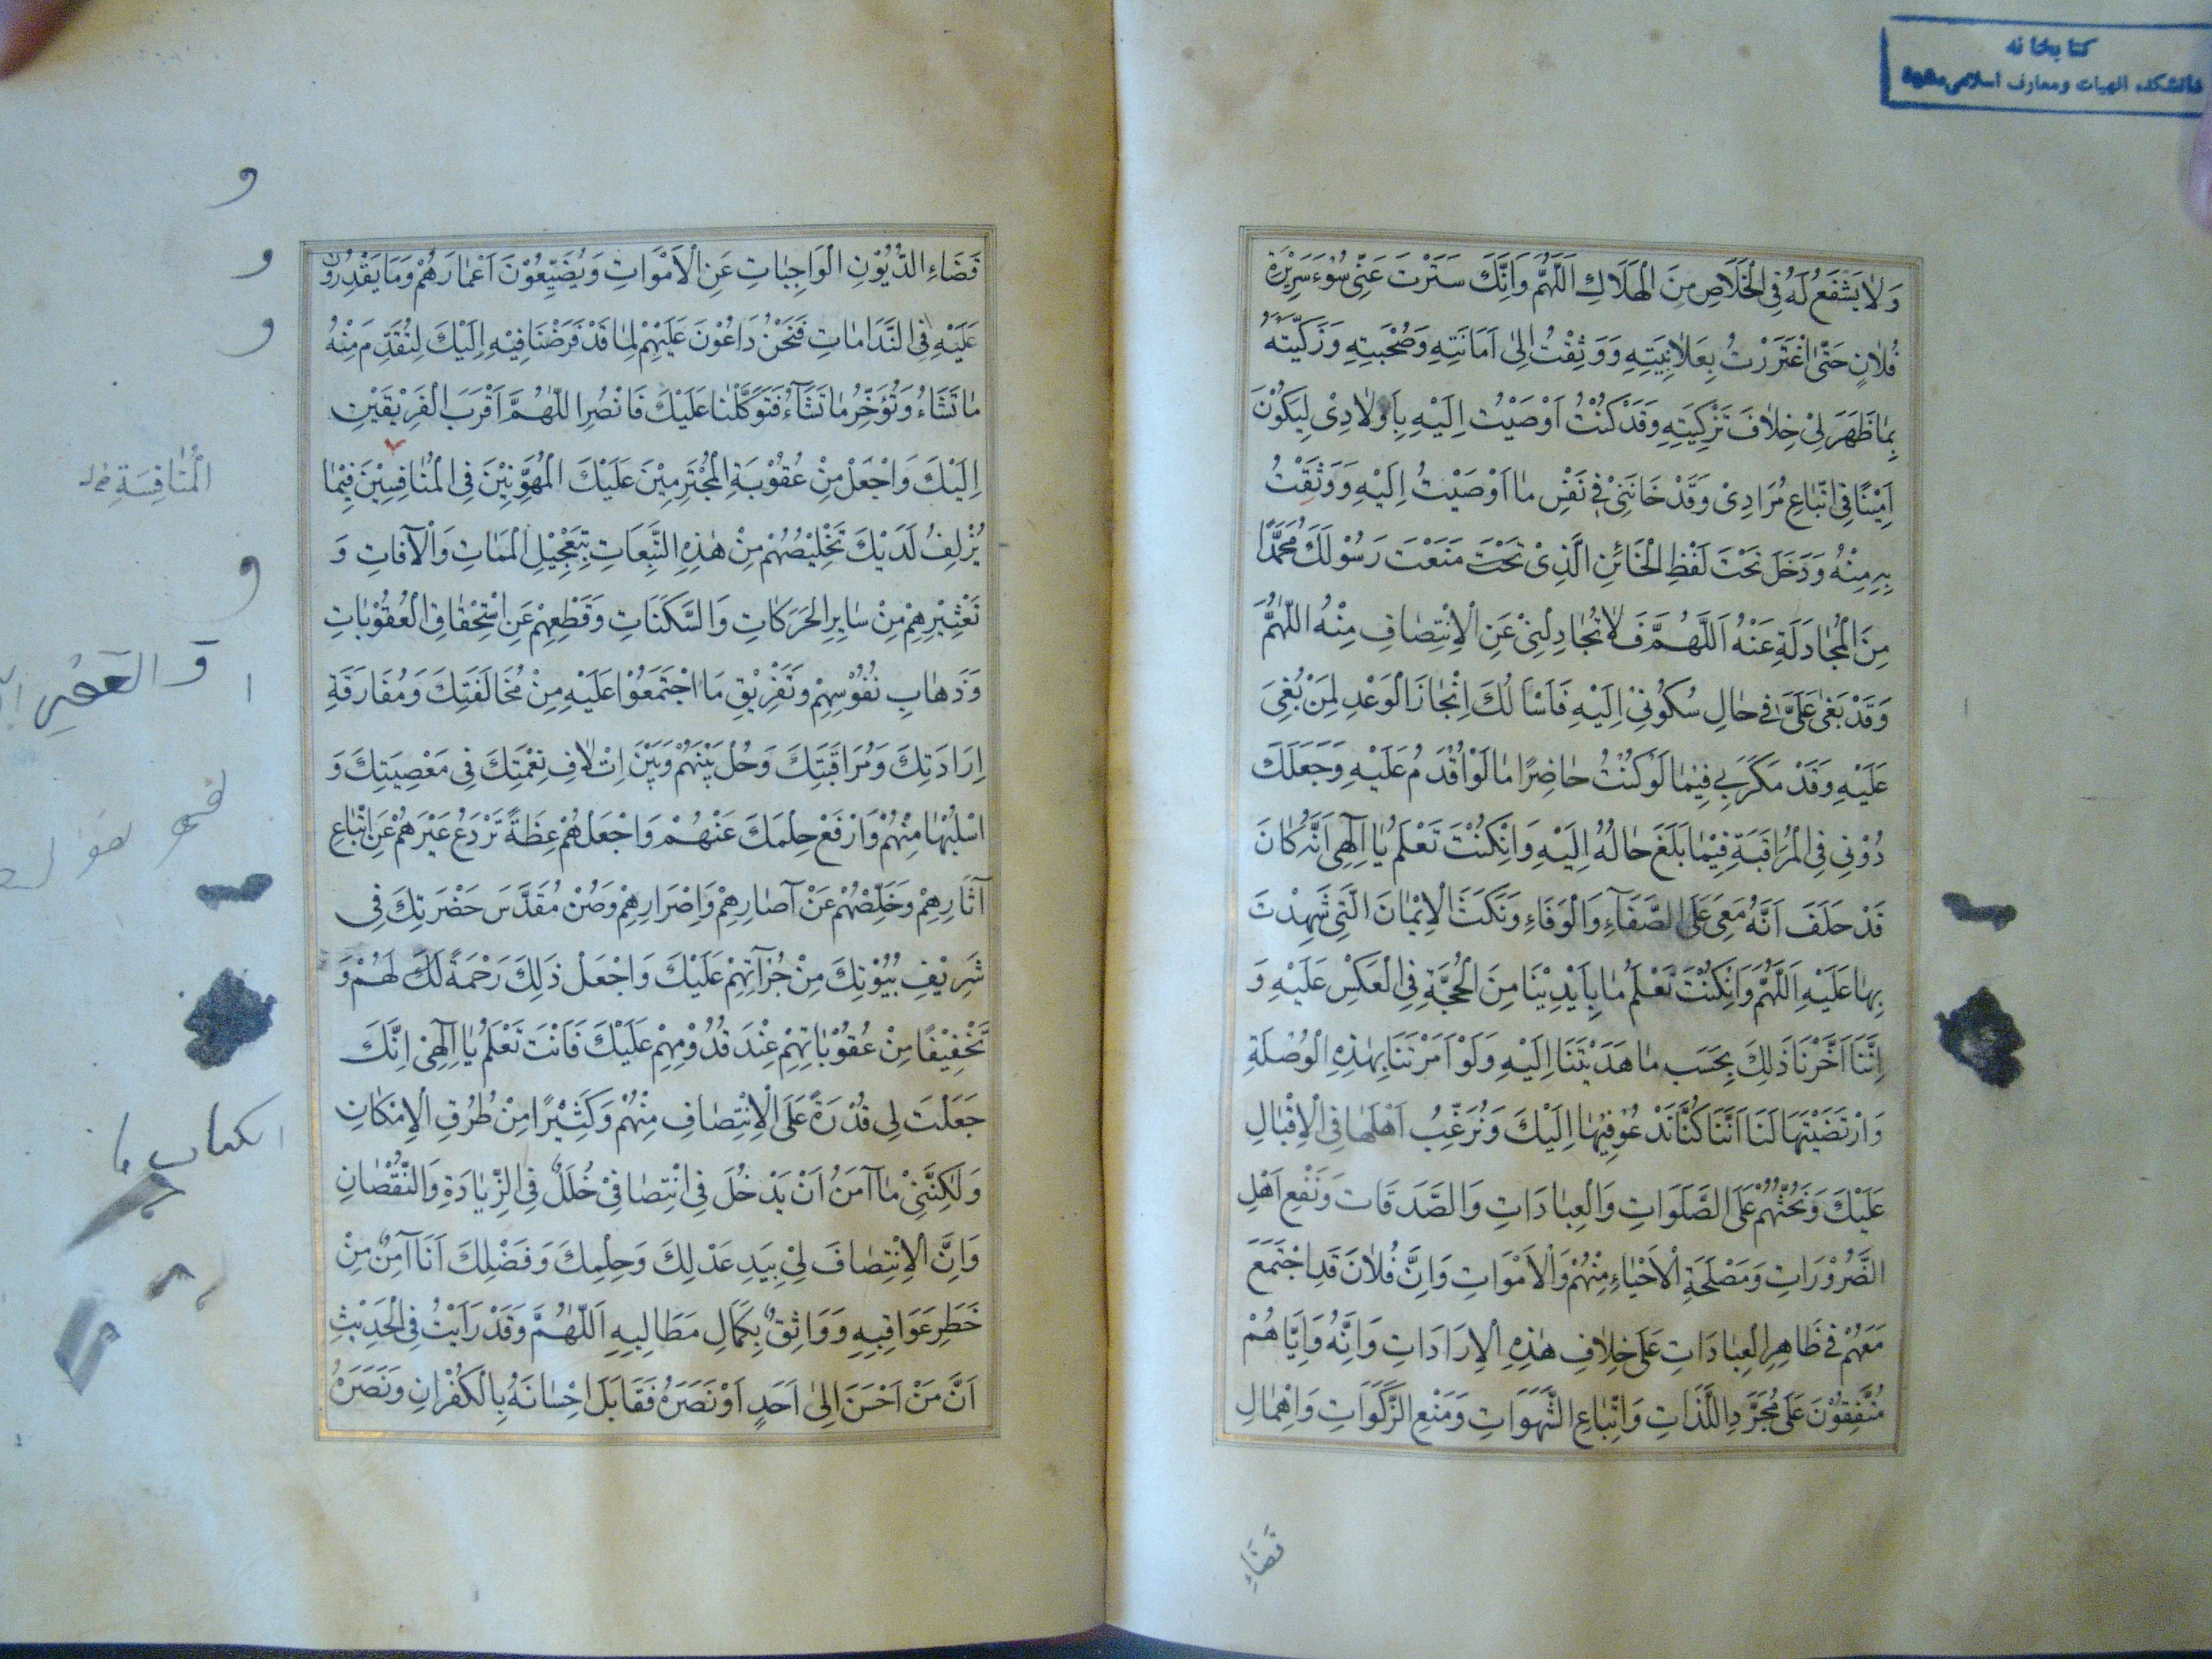 كتابخانه
دانشكده الهيات ومعارف اسلامی مشهد
وَلَا يَشْفَعُ لَهُ فِي الْخَلَاصِ مِنَ الْهَلَاكِ اَللّٰهُمَّ وَاِنَّكَ سَتَرْتَ عَنِّي سُوْءَ سَرِيْرَةِ
فُلَانٍ حَتّٰى اغْتَرَرْتُ بِعَلَانِيَتِهِ وَوَثِقْتُ اِلٰى اَمَانَتِهِ وَصُحْبَتِهِ وَزَكَّيْتَهُ
بِمَا ظَهَرَ لِيْ خِلَافَ تَزْكِيَتِهِ وَقَدْ كُنْتُ اَوْصَيْتُ اِلَيْهِ بِاَوْلَادِيْ لِيَكُوْنَ
اَمِيْنًا فِي اتِّبَاعِ مُرَادِيْ وَقَدْ خَانَنِيْ فِي نَفْسِ مَا اَوْصَيْتُ اِلَيْهِ وَوَثَقْتُ
بِهِ مِنْهُ وَدَخَلَ تَحْتَ لَفْظِ الْخَائِنِ الَّذِيْ تَحْتَ مَنَعْتَ رَسُوْلَكَ مُحَمَّدًا
مِنَ الْمُجَادَلَةِ عَنْهُ اَللّٰهُمَّ فَلَا تُجَادِلْنِيْ عَنِ الْاِنْتِصَافِ مِنْهُ اللّٰهُمَّ
وَقَدْ بَغٰى عَلَيَّ فِي حَالِ سُكُوْنِيْ اِلَيْهِ فَاَسْاَلُكَ اِنْجَازَ الْوَعْدِ لِمَنْ بُغِيَ
عَلَيْهِ وَقَدْ مَكَرَ بِي فِيْمَا لَوْ كُنْتُ حَاضِرًا مَا لَوْ اُقْدِمُ عَلَيْهِ وَجَعَلَكَ
دُوْنِي فِي الْمُرَاقَبَةِ فِيْمَا بَلَغَ حَالُهُ اِلَيْهِ وَاِنْ كُنْتَ تَعْلَمُ يَا اِلٰهِي اَنَّهُ كَانَ
قَدْ حَلَفَ اَنَّهُ مَعِيَ عَلَى الصَّفَاءِ وَالْوَفَاءِ وَنَكَثَ الْاِيْمَانَ الَّتِي شَهِدْتَ
بِهَا عَلَيْهِ اَللّٰهُمَّ وَاِنْ كُنْتَ تَعْلَمُ مَا بِاَيْدِيْنَا مِنَ الْحُجَّةِ فِي الْعَكْسِ عَلَيْهِ وَ
اِنَّنَا اَخَّرْنَا ذٰلِكَ بِحَسَبِ مَا هَدَيْتَنَا اِلَيْهِ وَلَوْ اَمَرْتَنَا بِهٰذِهِ الْوُصْلَةِ
وَارْتَضَيْتَهَا لَنَا اَنَّنَا كُنَّا نَدْعُوْ فِيْهَا اِلَيْكَ وَنُرَغِّبُ اَهْلَهَا فِي الْاِقْبَالِ
عَلَيْكَ وَنَحُثُّهُمْ عَلَى الصَّلَوَاتِ وَالْعِبَادَاتِ وَالصَّدَقَاتِ وَنَفْعِ اَهْلِ
الضَّرُوْرَاتِ وَمَصْلَحَةِ الْاَحْيَاءِ مِنْهُمْ وَالْاَمْوَاتِ وَاِنَّ فُلَانَ قَدِ اجْتَمَعَ
مَعَهُمْ فِي ظَاهِرِ الْعِبَادَاتِ عَلٰى خِلَافِ هٰذِهِ الْاِرَادَاتِ وَاِنَّهُ وَاِيَّاهُمْ
مُتَّفِقُوْنَ عَلٰى مُجَرَّدِ اللَّذَّاتِ وَاتِّبَاعِ الشَّهَوَاتِ وَمَنْعِ الزَّكَوَاتِ وَاِهْمَالِ
قَضَاءِ
قَضَاءِ الدُّيُوْنِ الْوَاجِبَاتِ عَنِ الْاَمْوَاتِ وَيُضَيِّعُوْنَ اَعْمَارَهُمْ وَمَا يَقْدِرُوْنَ
عَلَيْهِ فِي النَّدَامَاتِ فَنَحْنُ دَاعُوْنَ عَلَيْهِمْ لِمَا قَدْ فَرَضْنَا فِيْهِ اِلَيْكَ لِتُقَدِّمَ مِنْهُ
مَا تَشَاءُ وَتُؤَخِّرُ مَا تَشَاءُ فَتَوَكَّلْنَا عَلَيْكَ فَانْصُرِ اللّٰهُمَّ اَقْرَبَ الْفَرِيْقَيْنِ
اِلَيْكَ وَاجْعَلْ مِنْ عُقُوْبَةِ الْمُجْتَرِمِيْنَ عَلَيْكَ الْمُهَوِّنِيْنَ فِي الْمُنَافِسِيْنَ فِيْمَا
الْمُنَافِسَةِ
يُزْلِفُ لَدَيْكَ تَخْلِيْصُهُمْ مِنْ هٰذِهِ التَّبِعَاتِ بِتَعْجِيْلِ الْمَمَاتِ وَالْآفَاتِ وَ
تَعْثِيْرِهِمْ مِنْ سَايِرِ الْحَرَكَاتِ وَالسَّكَنَاتِ وَقَطْعِهِمْ عَنِ اسْتِحْقَاقِ الْعُقُوْبَاتِ
وَذَهَابِ نُفُوْسِهِمْ وَتَفْرِيْقِ مَا اجْتَمَعُوْا عَلَيْهِ مِنْ مُخَالَفَتِكَ وَمُفَارَقَةِ
اِرَادَتِكَ وَمُرَاقَبَتِكَ وَحُلْ بَيْنَهُمْ وَبَيْنَ اِتْلَافِ نِعْمَتِكَ فِي مَعْصِيَتِكَ وَ
اسْلُبْهَا مِنْهُمْ وَارْفَعْ حِلْمَكَ عَنْهُمْ وَاجْعَلْهُمْ عِظَةً تَرْدَعُ غَيْرَهُمْ عَنِ اتِّبَاعِ
آثَارِهِمْ وَخَلِّصْهُمْ عَنْ آصَارِهِمْ وَاِصْرَارِهِمْ وَصُنْ مُقَدَّسَ حَضْرَتِكَ فِي
شَرِيْفِ بُيُوْتِكَ مِنْ جُرْآتِهِمْ عَلَيْكَ وَاجْعَلْ ذٰلِكَ رَحْمَةً لَكَ لَهُمْ وَ
تَخْفِيْفًا مِنْ عُقُوْبَاتِهِمْ عِنْدَ قُدُوْمِهِمْ عَلَيْكَ فَاَنْتَ تَعْلَمُ يَا اِلٰهِيْ اِنَّكَ
جَعَلْتَ لِي قُدْرَةً عَلَى الْاِنْتِصَافِ مِنْهُمْ وَكَثِيْرًا مِنْ طُرُقِ الْاِمْكَانِ
وَلٰكِنَّنِيْ مَا آمَنُ اَنْ يَدْخُلَ فِي انْتِصَافِيْ خُلَلٌ فِي الزِّيَادَةِ وَالنُّقْصَانِ
وَاِنَّ الْاِنْتِصَافَ لِيْ بِيَدِ عَدْلِكَ وَحِلْمِكَ وَفَضْلِكَ اَنَا آمِنٌ مِنْ
خَطَرِ عَوَاقِبِهِ وَوَاثِقٌ بِكَمَالِ مَطَالِبِهِ اَللّٰهُمَّ وَقَدْ رَاَيْتُ فِي الْحَدِيْثِ
اَنَّ مَنْ اَحْسَنَ اِلٰى اَحَدٍ اَوْ نَصَرَهُ فَقَابَلَ اِحْسَانَهُ بِالْكُفْرَانِ وَنَصَرَهُ